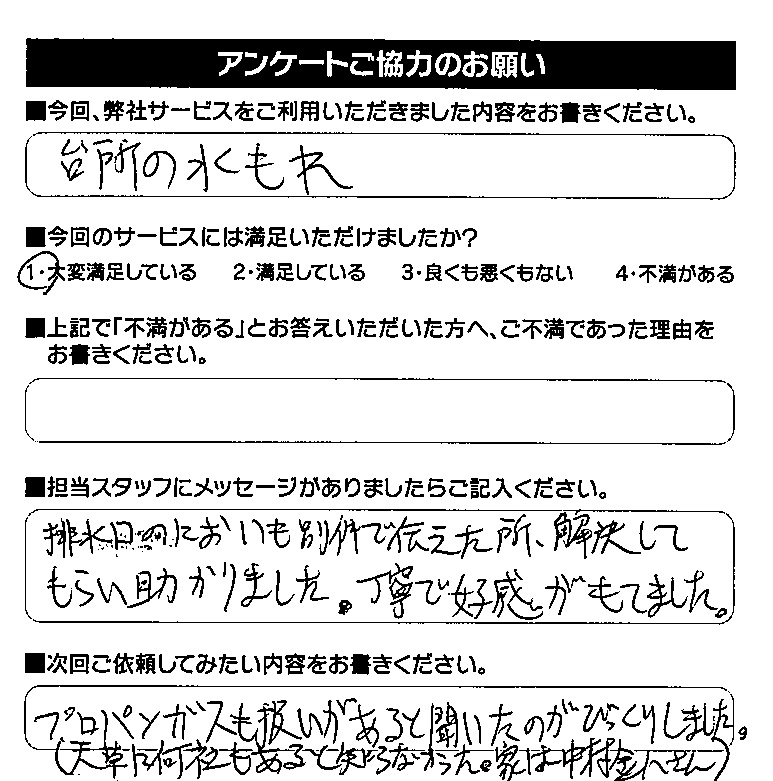 アンケートご協力のお願い
■今回、弊社サービスをご利用いただきました内容をお書きください。
台所の水もれ
■今回のサービスには満足いただけましたか?
1・大変満足している 2・満足している 3・良くも悪くもない 4・不満がある
■上記で「不満がある」とお答えいただいた方へ、ご不満であった理由を
お書きください。
■担当スタッフにメッセージがありましたらご記入ください。
排水口のにおいも別件で伝えた所、解決して
もらい助かりました。丁寧で好感がもてました。
■次回ご依頼してみたい内容をお書きください。
プロパンガスも扱いがあると聞いたのがびっくりしました。
(天草に何社もあると知らなかった。家は中村さん)